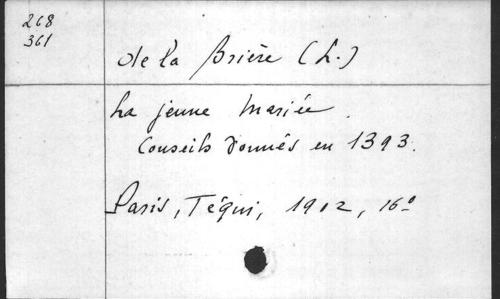 268
361
de la Brière (L.)
La jeune Mariée.
Conseils donnés en 1393.
Paris, Téqui, 1902, 16º